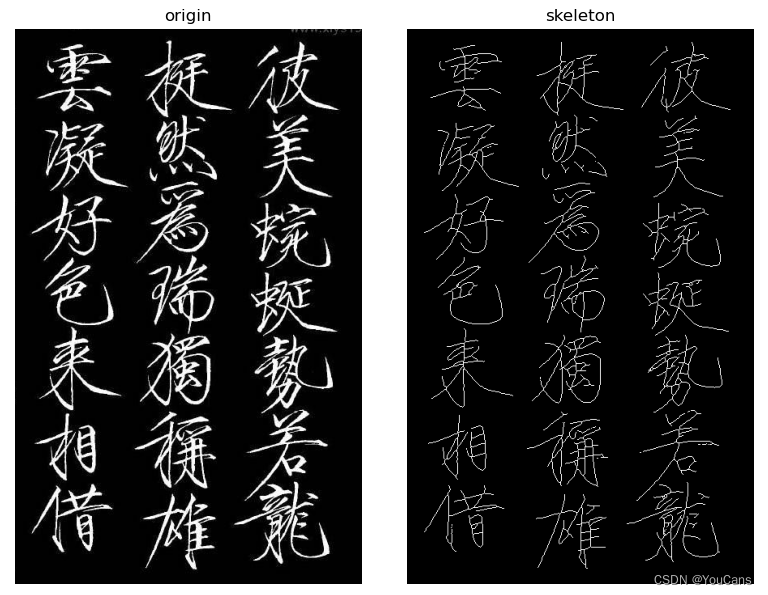 origin
skeleton
彼美蜿蜒勢若龍
挺然爲瑞獨稱雄
雲凝好色来相借
彼美蜿蜒勢若龍
挺然爲瑞獨稱雄
雲凝好色来相借
CSDN @YouCans